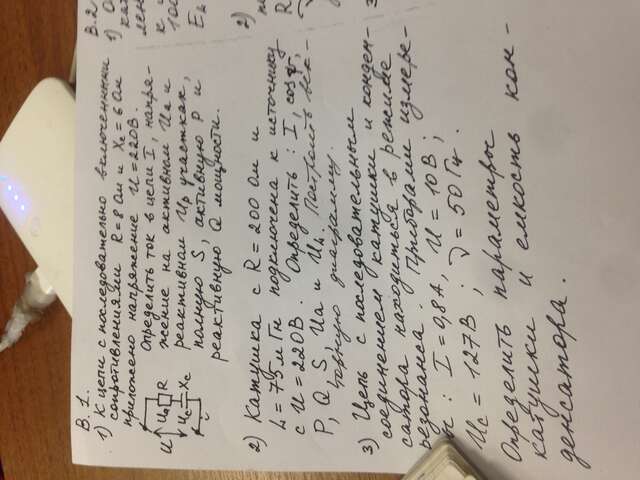 В. 1.
1) К цепи с последовательно включенными
сопротивлениями R = 8 Ом и Xc = 6 Ом
приложено напряжение U = 220В.
Определить ток в цепи I, напря-
жение на активном Uа и
реактивном Uр участках,
полную S, активную P и
реактивную Q мощности.
U Uа R
Uc Xc
i
2) Катушка с R = 200 Ом и
L = 75 мГн подключена к источнику
с U = 220В. Определить : I, cos φ,
P, Q, S, Uа и UL. Построить век-
торную диаграмму.
3) Цепь с последовательным
соединением катушки и конден-
сатора находиться в режиме
резонанса. Приборами измере-
ны : I = 0,8 А, U = 10 В ;
Uc = 127 В ; ν = 50 Гц.
Определить параметры
катушки и емкость кон-
денсатора.
В. 2
1)
кат
лен
к и
100
2)
R